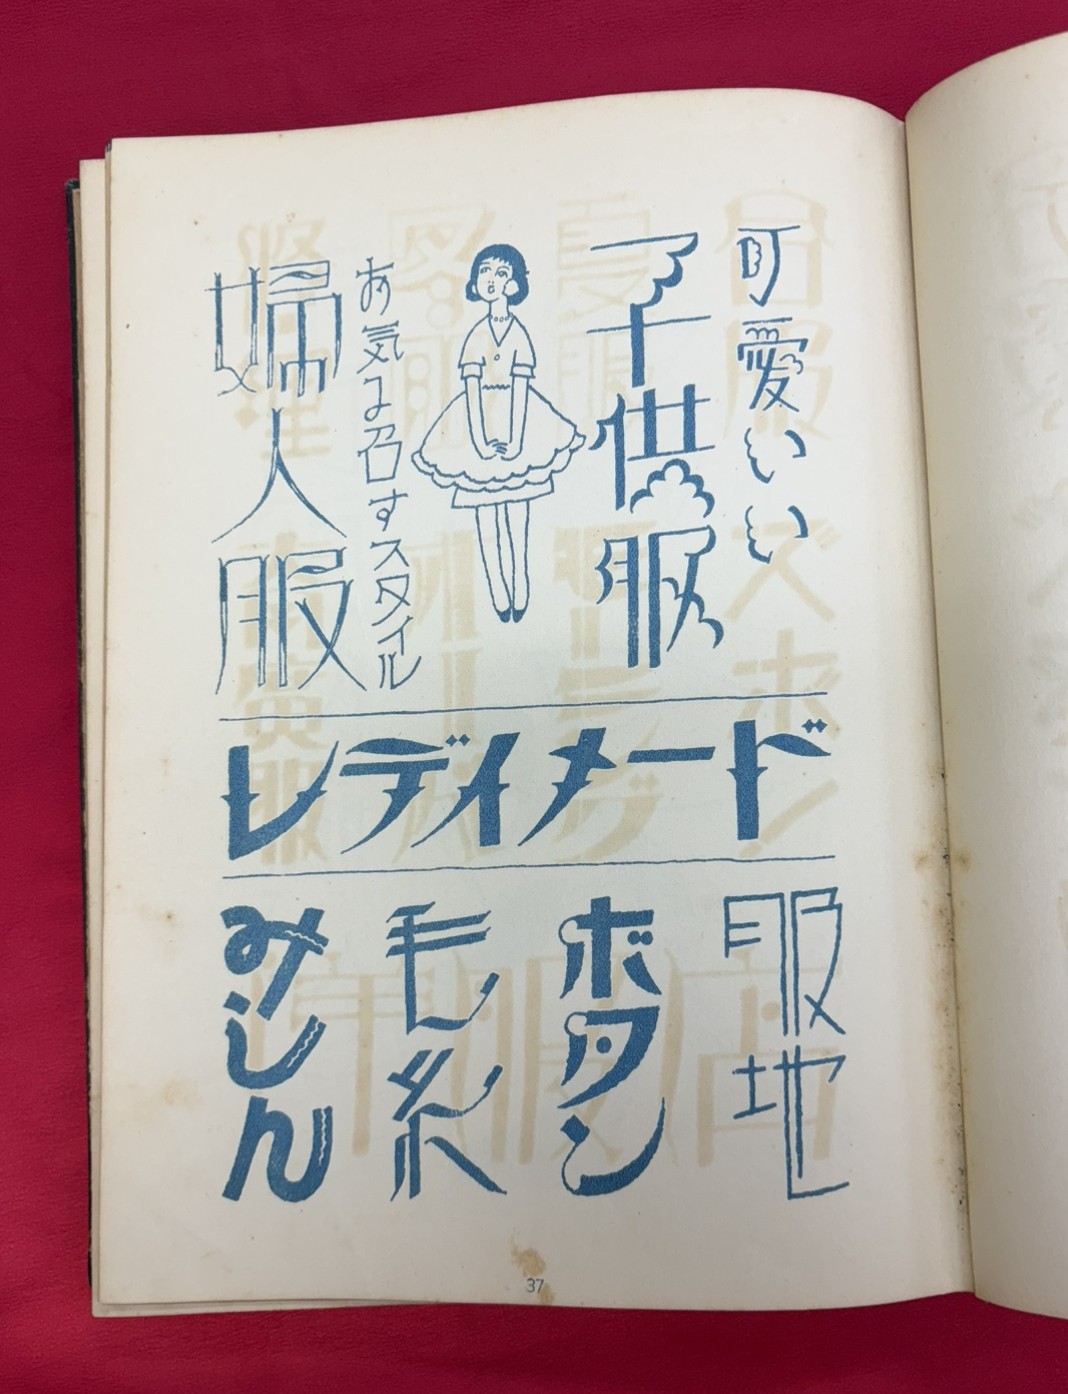 可愛いい
子供服
お気に召すスタイル
婦人服
レディメード
服地
ボタン
毛糸
みしん
37